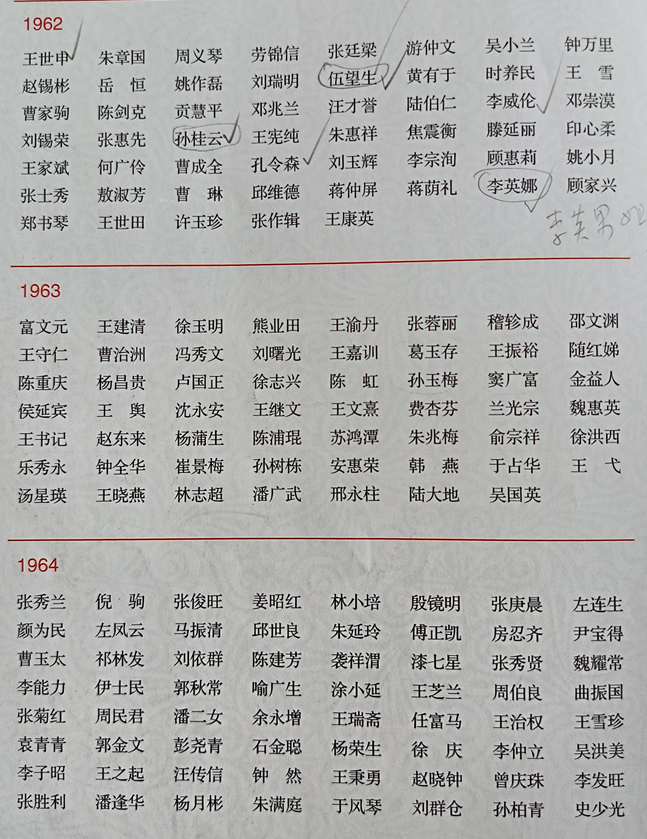 1962
王世申 朱章国 周义琴 劳锦信 张廷梁 游仲文 吴小兰 钟万里
赵锡彬 岳恒 姚作磊 刘瑞明 伍望生 黄有于 时养民 王雪
曹家驹 陈剑克 贡慧平 邓兆兰 汪才誉 陆伯仁 李威伦 邓崇漠
刘锡荣 张惠先 孙桂云 王宪纯 朱惠祥 焦震衡 滕延丽 印心柔
王家斌 何广伶 曹成全 孔令森 刘玉辉 李宗洵 顾惠莉 姚小月
张士秀 敖淑芳 曹琳 邱维德 蒋仲屏 蒋荫礼 李英娜 顾家兴
郑书琴 王世田 许玉珍 张作辑 王康英
李英男
1963
富文元 王建清 徐玉明 熊业田 王渝丹 张蓉丽 稽轸成 邵文渊
王守仁 曹治洲 冯秀文 刘曙光 王嘉训 葛玉存 王振裕 随红娣
陈重庆 杨昌贵 卢国正 徐志兴 陈虹 孙玉梅 窦广富 金益人
侯延宾 王舆 沈永安 王继文 王文熹 费杏芬 兰光宗 魏惠英
王书记 赵东来 杨蒲生 陈浦琨 苏鸿潭 朱兆梅 俞宗祥 徐洪西
乐秀永 钟全华 崔景梅 孙树栋 安惠荣 韩燕 于占华 王弋
汤星瑛 王晓燕 林志超 潘广武 邢永柱 陆大地 吴国英
1964
张秀兰 倪驹 张俊旺 姜昭红 林小培 殷镜明 张庚晨 左连生
颜为民 左凤云 马振清 邱世良 朱延玲 傅正凯 房忍齐 尹宝得
曹玉太 祁林发 刘依群 陈建芳 袭祥渭 漆七星 张秀贤 魏耀常
李能力 伊士民 郭秋常 喻广生 涂小延 王芝兰 周伯良 曲振国
张菊红 周民君 潘二女 余永增 王瑞斋 任富马 王治权 王雪珍
袁青青 郭金文 彭尧青 石金聪 杨荣生 徐庆 李仲立 吴洪美
李子昭 王之起 汪传信 钟然 王秉勇 赵晓钟 曾庆珠 李发旺
张胜利 潘逢华 杨月彬 朱满庭 于风琴 刘群仓 孙柏青 史少光